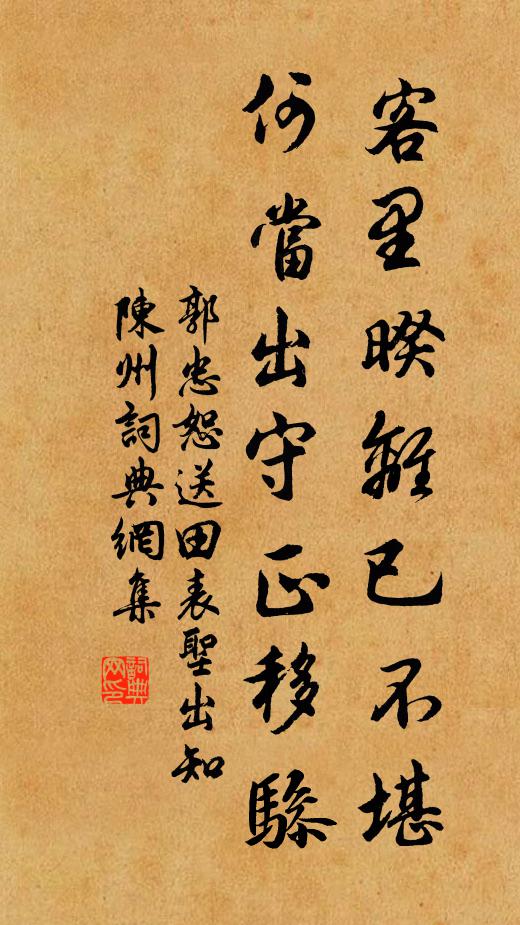 客里暌離已不堪
何當出守正移驂
郭忠恕送田表聖出知
陳州詞典網集
詞典
网印